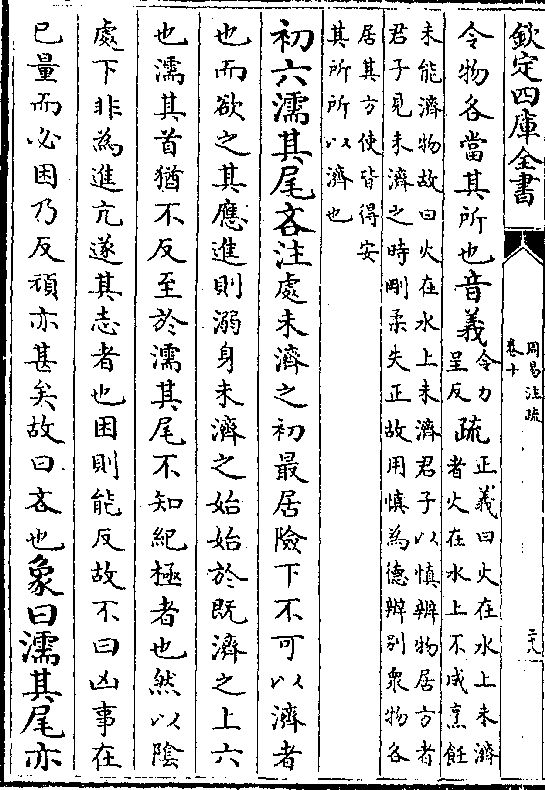 欽定四庫全書
周易注疏
卷十
二十八
令物各當其所也音義
令力
呈反
疏
正義曰火在水上未濟
者火在水上不成烹飪
未能濟物故曰火在水上未濟君子以慎辨物居方者
君子見未濟之時剛柔失正故用慎為德辨别衆物各
居其方使皆得安
其所所以濟也
初六濡其尾吝注處未濟之初最居險下不可以濟者
也而欲之其應進則溺身未濟之始始於既濟之上六
也濡其首猶不反至於濡其尾不知紀極者也然以陰
處下非為進亢遂其志者也困則能反故不曰凶事在
已量而必困乃反頑亦甚矣故曰吝也象曰濡其尾亦